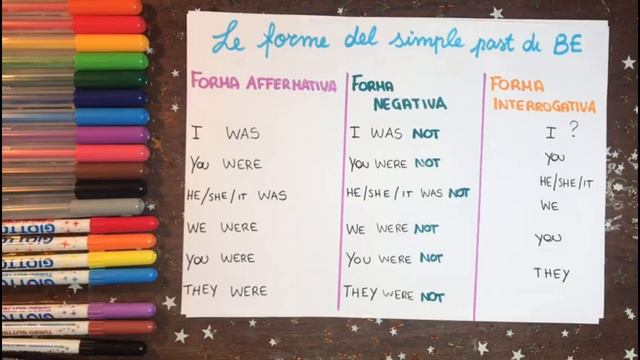 Le forme del simple past di BE
FORMA AFFERMATIVA
I WAS
YOU WERE
HE/SHE/IT WAS
WE WERE
YOU WERE
THEY WERE
FORMA
NEGATIVA
I WAS NOT
YOU WERE NOT
HE/SHE/IT WAS NOT
WE WERE NOT
YOU WERE NOT
THEY WERE NOT
FORMA
INTERROGATIVA
I ?
YOU
HE/SHE/IT
WE
YOU
THEY
GIOTTO
GIOTTO
GIOTTO
GIOTTO